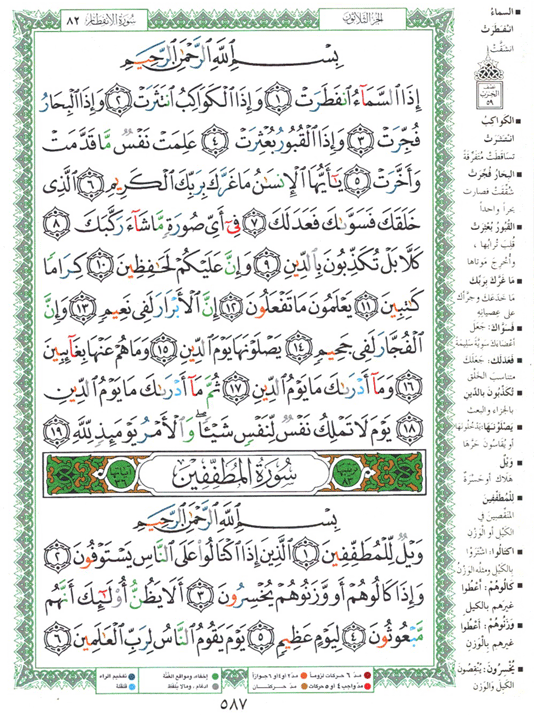 سُورَةُ الانفِطَار ٨٢
الجزء الثلاثون
بِسْمِ اللَّهِ الرَّحْمَٰنِ الرَّحِيمِ
إِذَا السَّمَاءُ انفَطَرَتْ ١ وَإِذَا الْكَوَاكِبُ انتَثَرَتْ ٢ وَإِذَا الْبِحَارُ
فُجِّرَتْ ٣ وَإِذَا الْقُبُورُ بُعْثِرَتْ ٤ عَلِمَتْ نَفْسٌ مَّا قَدَّمَتْ
وَأَخَّرَتْ ٥ يَٰأَيُّهَا الْإِنسَٰنُ مَا غَرَّكَ بِرَبِّكَ الْكَرِيمِ ٦ الَّذِى
خَلَقَكَ فَسَوَّىٰكَ فَعَدَلَكَ ٧ فِىٓ أَىِّ صُورَةٍ مَّا شَاءَ رَكَّبَكَ ٨
كَلَّا بَلْ تُكَذِّبُونَ بِالدِّينِ ٩ وَإِنَّ عَلَيْكُمْ لَحَٰفِظِينَ ١٠ كِرَامًا
كَٰتِبِينَ ١١ يَعْلَمُونَ مَا تَفْعَلُونَ ١٢ إِنَّ الْأَبْرَارَ لَفِى نَعِيمٍ ١٣ وَإِنَّ
الْفُجَّارَ لَفِى جَحِيمٍ ١٤ يَصْلَوْنَهَا يَوْمَ الدِّينِ ١٥ وَمَا هُمْ عَنْهَا بِغَائِبِينَ
١٦ وَمَا أَدْرَىٰكَ مَا يَوْمُ الدِّينِ ١٧ ثُمَّ مَا أَدْرَىٰكَ مَا يَوْمُ الدِّينِ
١٨ يَوْمَ لَا تَمْلِكُ نَفْسٌ لِّنَفْسٍ شَيْـًٔا ۖ وَالْأَمْرُ يَوْمَئِذٍ لِّلَّهِ ١٩
آياتها ٣٦ سُورَةُ الْمُطَفِّفِينَ ترتيبها ٨٣
بِسْمِ اللَّهِ الرَّحْمَٰنِ الرَّحِيمِ
وَيْلٌ لِّلْمُطَفِّفِينَ ١ الَّذِينَ إِذَا اكْتَالُوا عَلَى النَّاسِ يَسْتَوْفُونَ ٢
وَإِذَا كَالُوهُمْ أَو وَّزَنُوهُمْ يُخْسِرُونَ ٣ أَلَا يَظُنُّ أُولَٰئِكَ أَنَّهُم
مَّبْعُوثُونَ ٤ لِيَوْمٍ عَظِيمٍ ٥ يَوْمَ يَقُومُ النَّاسُ لِرَبِّ الْعَالَمِينَ ٦
السماءُ
انفَطَرَتْ
انشقَّتْ
نصف
الحزب
٥٩
الكواكِبُ
انتَثَرَتْ
تساقطَتْ مُتفرِّقةً
البِحارُ فُجِّرَتْ
شُقِّقَتْ فصارت
بحراً واحداً
القُبُورُ بُعْثِرَتْ
قُلِبَ تُرابُها ،
وأُخْرِجَ مَوتاها
ما غَرَّكَ بِرَبِّك
ما خدعَكَ وجرّأكَ
على عِصيانِه
فَسَوَّاكَ: جَعَلَ
أعضاءَكَ سويّةً سليمةً
فَعَدَلَك: جَعَلَكَ
متناسبَ الخَلْق
تُكَذِّبُونَ بالدِّينِ
بالجزاء والبعث
يَصْلَوْنَها: يَدْخُلُونها
أو يُقاسُون حَرَّها
وَيْلٌ
هَلاك أو حَسْرَة
لِلْمُطَفِّفِينَ
المُنْقِصِينَ في
الكَيْلِ أو الوَزْنِ
اكتالُوا: اشتَرَوْا
بالكَيْلِ ومثلُه الوَزْنُ
كالُوهُمْ: أعْطَوْا
غيرَهم بالكيل
وَزَنُوهُمْ: أعْطَوْا
غيرَهم بالوَزْنِ
يُخْسِرُونَ: يُنْقِصُونَ
الكَيْلَ والوَزْنَ
مدّ ٦ حركات لزوماً مدّ ٢ أو ٤ أو ٦ جوازاً إخفاء، ومواقع الغُنَّة تفخيم الراء
مدّ واجب ٤ أو ٥ حركات مدّ حركتان إدغام ، ومالا يُلفَظ قلقلة
٥٨٧